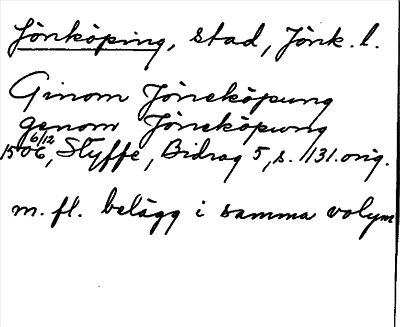 Jönköping, stad, Jönk. l.
Ginom Jöneköpung
genom Jöneköpung
6/12
1506, Styffe, Bidrag 5, s. 131. orig.
m. fl. belägg i samma volym